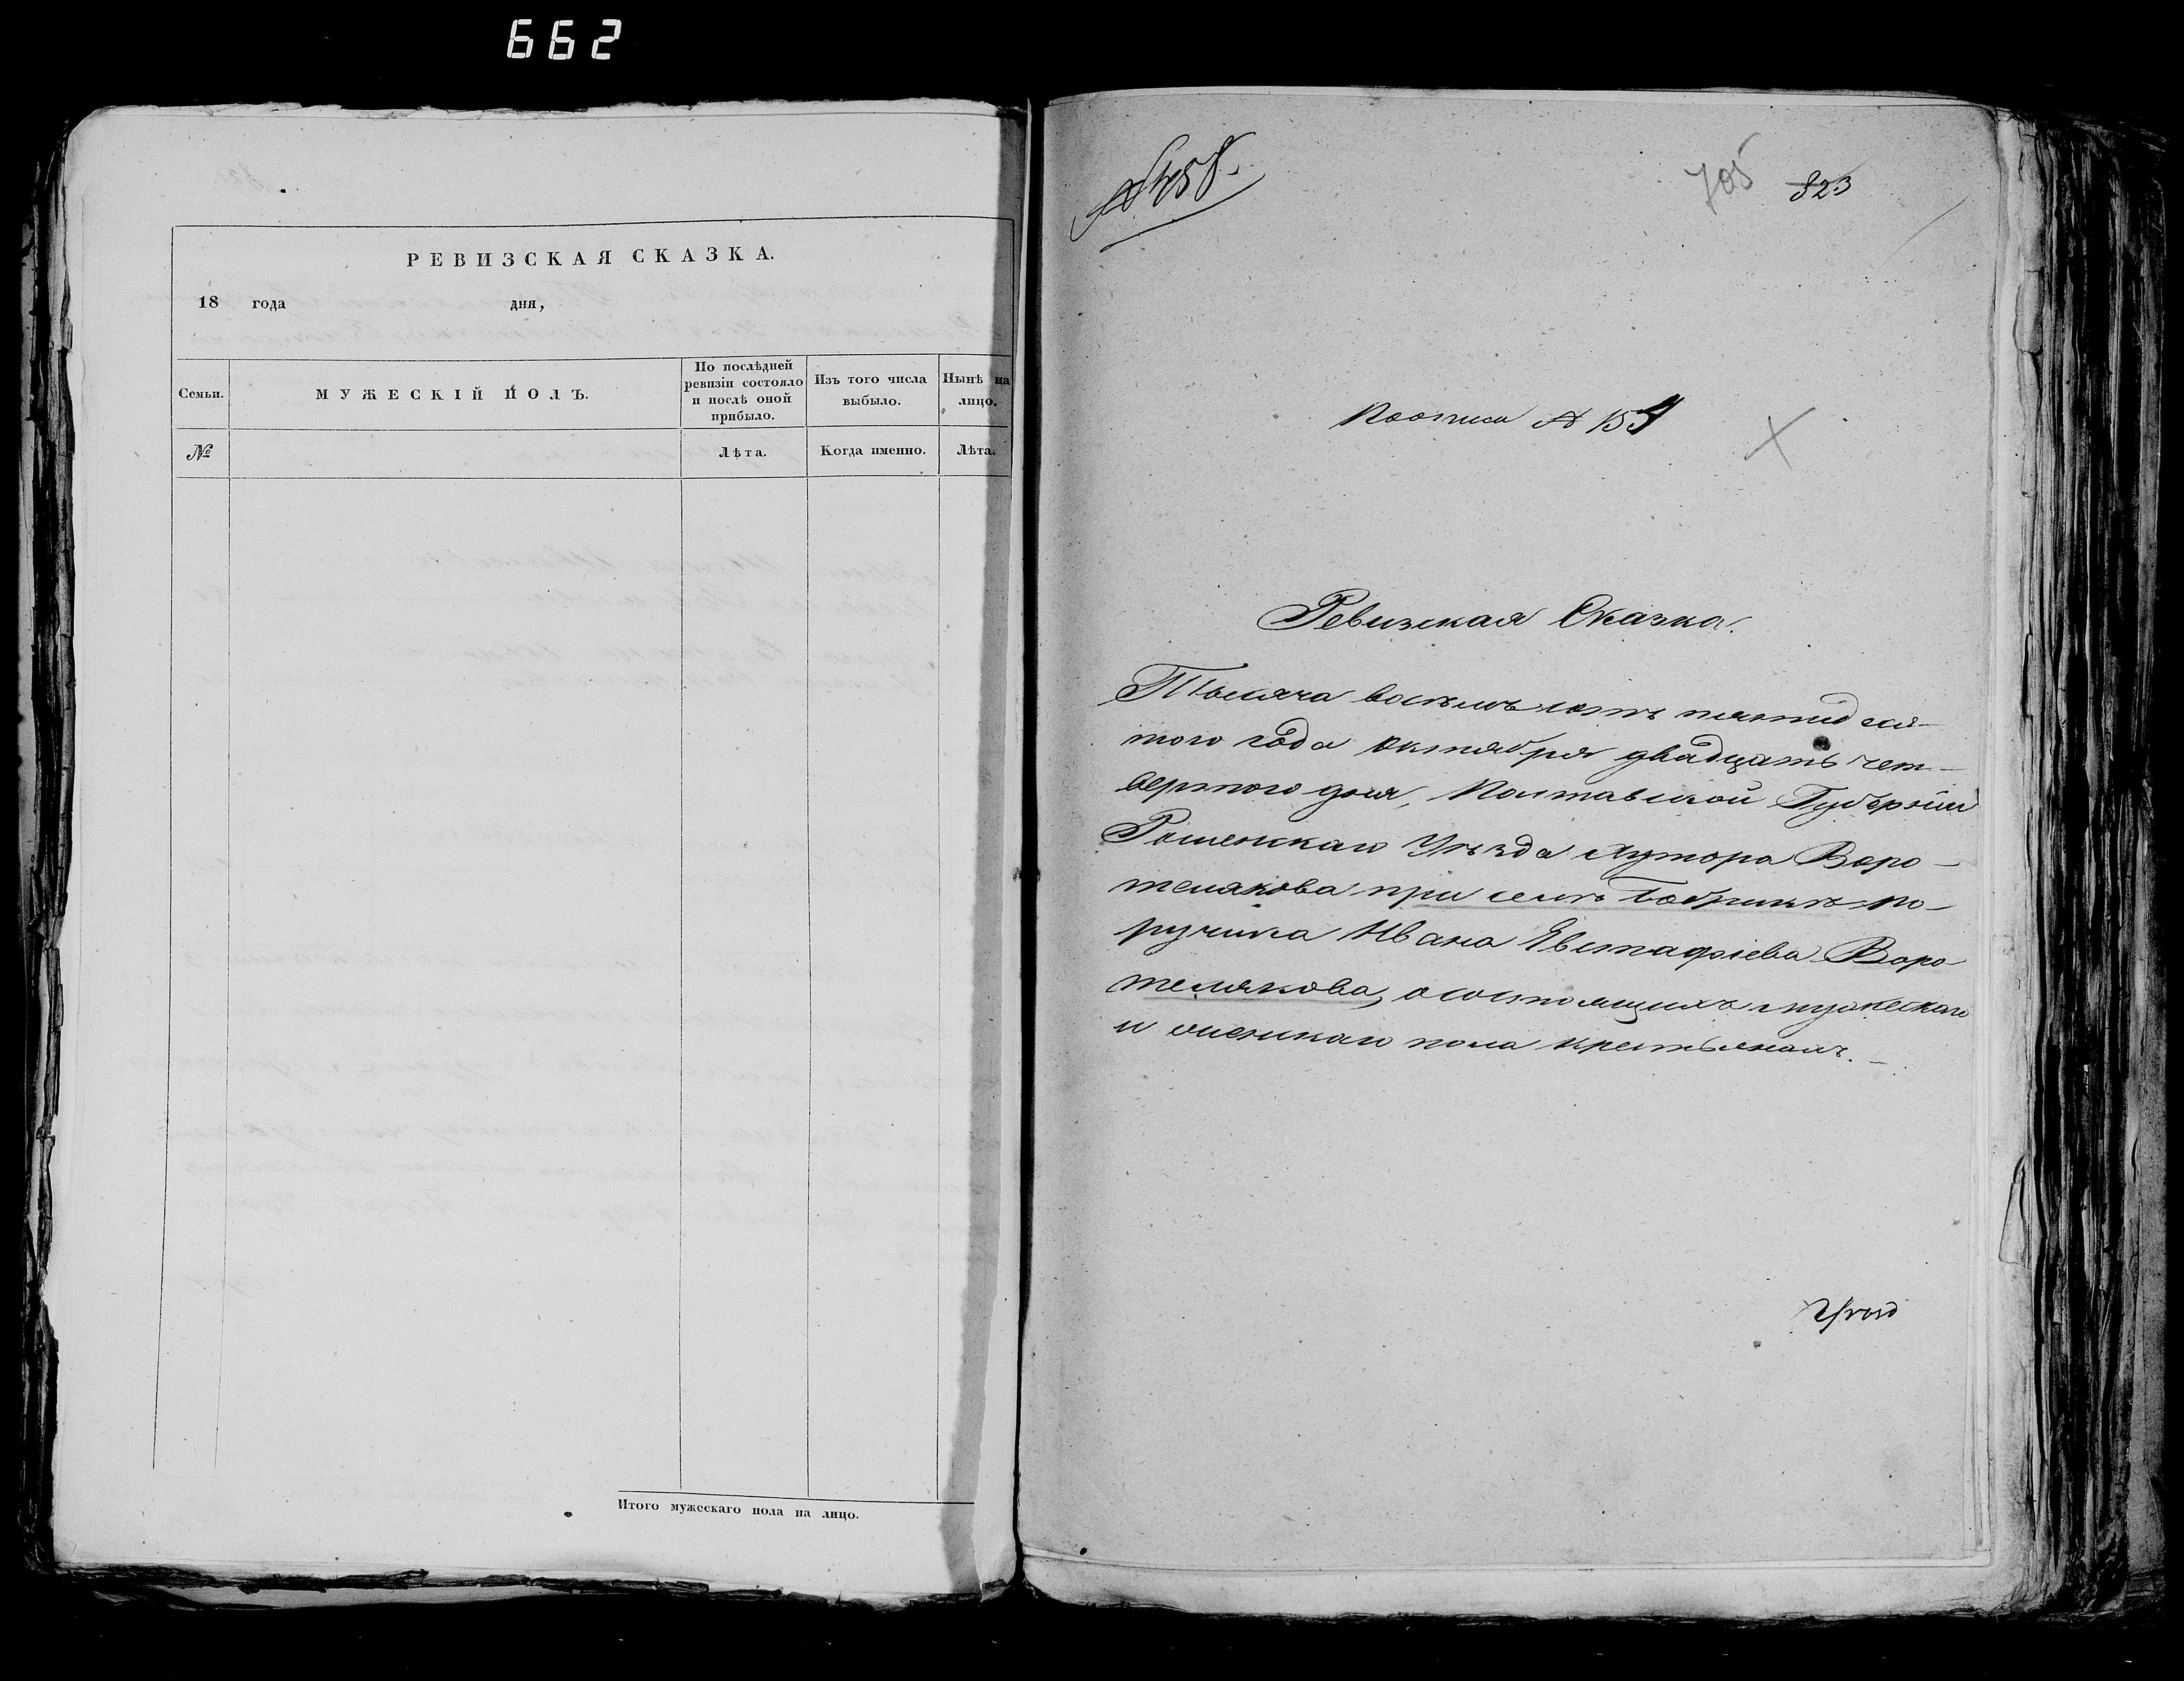 662
РЕВИЗСКАЯ СКАЗКА.
18 года дня,
Семьи.
МУЖЕСКІЙ ПОЛЪ.
По послѣдней ревизіи состояло и послѣ оной прибыло.
Изъ того числа выбыло.
Нынѣ на лицо.
№
Лѣта.
Когда именно.
Лѣта.
Итого мужескаго пола на лицо.
705 823
По описи № 154
Ревизская Сказка.
Тысяча восемьсотъ пятидеся-
того года Октября двадцать чет-
вертого дня, Полтавской Губерніи
Роменскаго Уѣзда Хутора Воро-
телякова при селѣ Бобрикѣ по-
ручика Ивана Евстафіева Воро
телякова, о состоящихъ мужескаго
и женскаго пола крестьянахъ.